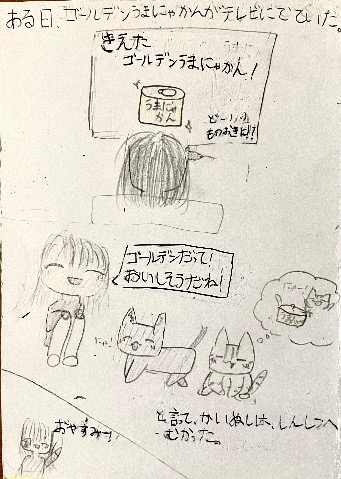 ある日、ゴールデンうまにゃかんがテレビにでていた。
きえた
ゴールデンうまにゃかん!
うまにゃ
かん
ものおきに!?
ゴールデンだって!
おいしそうだね!
にゃ
おやすみー!
と言って、かいぬしは、しんしつへ
むかった。